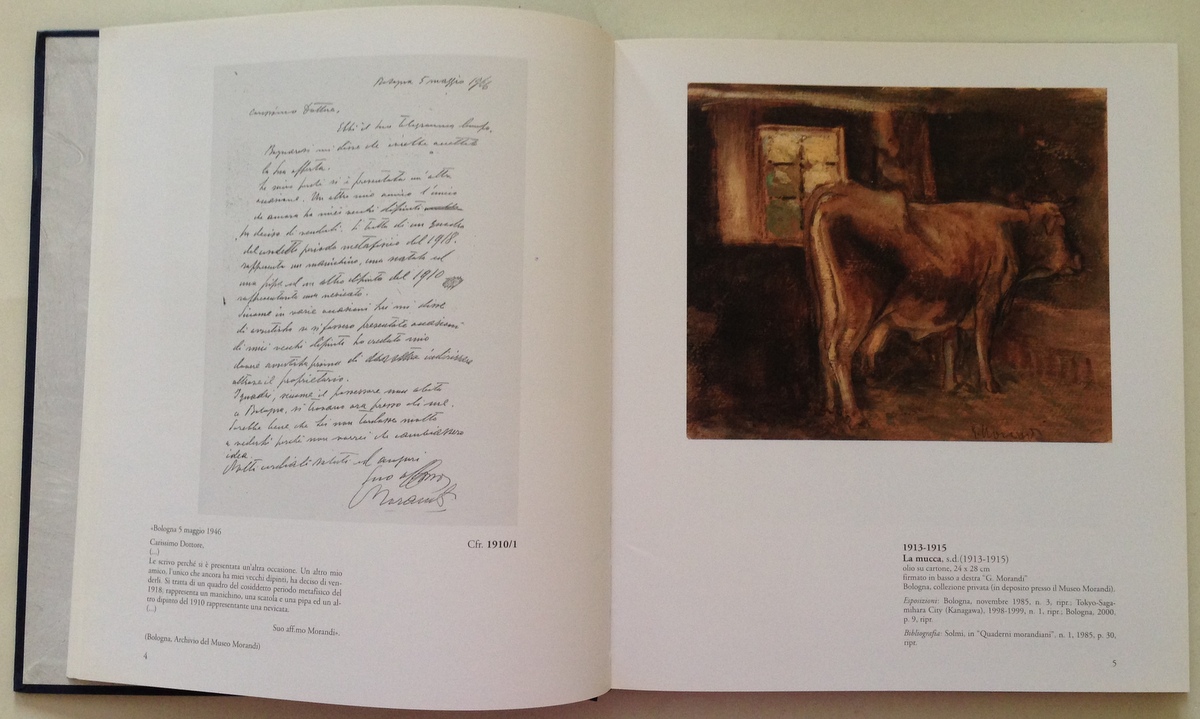 Bologna 5 maggio 1946
Carissimo Dottore,
Ebbi il suo telegramma
la sua offerta.
Le scrivo perché si è presentata un'altra
occasione. Un altro mio amico l'unico
che ancora ha miei vecchi dipinti
ha deciso di venderli. Si tratta di un quadro
del cosidetto periodo metafisico del 1918.
rappresenta un manichino, una scatola ed
una pipa ed un altro dipinto del 1910
rappresentante una nevicata.
Siccome in varie occasioni Lei mi disse
di avvertirla se si fossero presentate occasioni
di miei vecchi dipinti ho creduto mio
dovere avvertirla prima di
altrove il proprietario.
I quadri, siccome il possessore non abita
a Bologna, si trovano ora presso di me.
Sarebbe bene che Lei non tardasse molto
a vederli perché non vorrei che cambiasse
idea.
Molti cordiali saluti ed auguri
Suo aff.mo
Morandi
«Bologna 5 maggio 1946
Carissimo Dottore,
(...)
Le scrivo perché si è presentata un'altra occasione. Un altro mio
amico, l'unico che ancora ha miei vecchi dipinti, ha deciso di ven-
derli. Si tratta di un quadro del cosiddetto periodo metafisico del
1918. rappresenta un manichino, una scatola e una pipa ed un al-
tro dipinto del 1910 rappresentante una nevicata.
(...)
Suo aff.mo Morandi».
(Bologna, Archivio del Museo Morandi)
4
Cfr. 1910/1
G Morandi
1913-1915
La mucca, s.d.(1913-1915)
olio su cartone, 24 x 28 cm
firmato in basso a destra "G. Morandi"
Bologna, collezione privata (in deposito presso il Museo Morandi).
Esposizioni: Bologna, novembre 1985, n. 3, ripr.; Tokyo-Saga-
mihara City (Kanagawa), 1998-1999, n. 1, ripr.; Bologna, 2000,
p. 9, ripr.
Bibliografia: Solmi, in "Quaderni morandiani", n. 1, 1985, p. 30,
ripr.
5